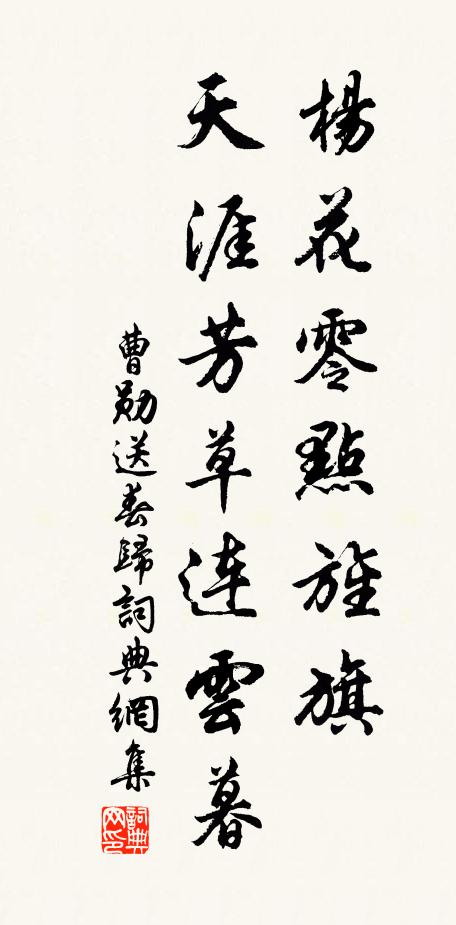 楊花零點旌旗
天涯芳草連雲暮
曹勛送春歸詞典網集
詞典网印